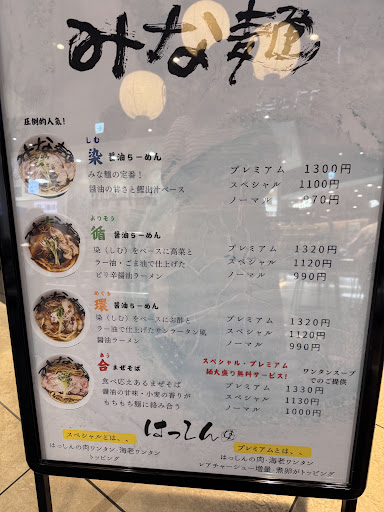 みな麺
圧倒的人気!
しむ
染 醤油らーめん
みな麺の定番!
醤油の旨さと鰹出汁ベース
プレミアム 1300円
スペシャル 1100円
ノーマル 970円
よりそう
循 醤油らーめん
染(しむ)をベースに高菜と
ラー油・ごま油で仕上げた
ピリ辛醤油ラーメン
プレミアム 1320円
スペシャル 1120円
ノーマル 990円
めぐる
環 醤油らーめん
染(しむ)をベースにお酢と
ラー油で仕上げたサンラータン風
醤油ラーメン
プレミアム 1320円
スペシャル 1120円
ノーマル 990円
あう
合 まぜそば
食べ応えあるまぜそば
醤油の甘味・小麦の香りが
もちもち麺に絡み合う
スペシャル・プレミアム
麺大盛り無料サービス!
ワンタンスープ
でのご提供
プレミアム 1330円
スペシャル 1130円
ノーマル 1000円
はっしん
スペシャルとは、、
はっしんの肉ワンタン・海老ワンタン
トッピング
プレミアムとは、、
はっしんの肉・海老ワンタン
レアチャーシュー増量・煮卵がトッピング